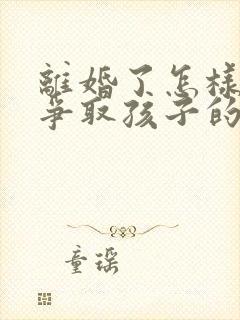 離婚了怎樣
爭取孩子的
童瑶